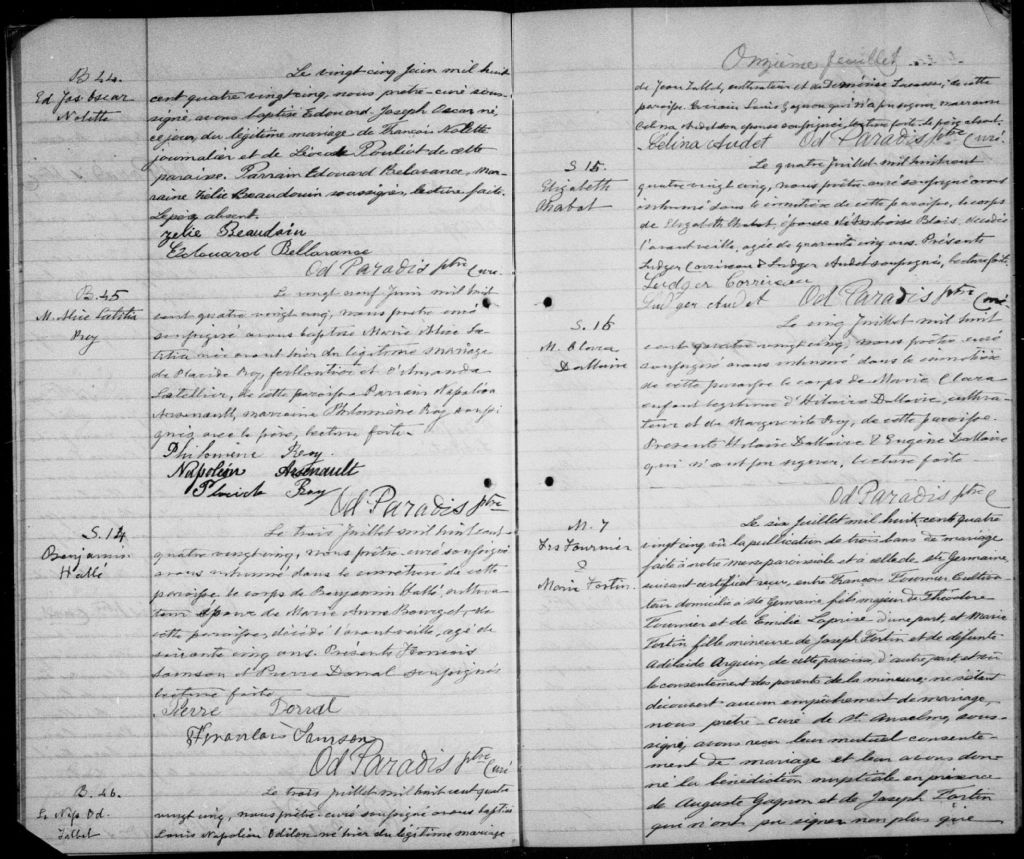 B 44.
Ed. Jos. Oscar
Nolette
Le vingt-cinq Juin mil huit
cent quatre vingt cinq, nous prêtre-curé sous-
signé avons baptisé Edouard Joseph Oscar né,
ce jour, du légitime mariage de François Nolette
journalier et de Pouliot de cette
paroisse. Parrain Edouard Belavance, Mar-
raine Zélie Beaudouin soussignés, lecture faite.
Le père absent.
Zelie Beaudoin
Edouard Bellavance
Od Paradis ptre Curé
B. 45
M. Alice Laetitia
Roy
Le vingt neuf Juin mil huit
cent quatre vingt cinq, nous prêtre curé
soussigné avons baptisé Marie Alice La
titia née avant hier du légitime mariage
de Placide Roy, ferblantier et d'Amanda
Letellier, de cette paroisse Parrain Napoléon
Arsenault, marraine Philomène Roy soussi
gnés avec le père, lecture faite.
Philomene Roy
Napoléon Arsenault
Placide Roy
Od Paradis ptre
S. 14
Benjamin
Hallé
Le trois Juillet mil huit cent
quatre vingt cinq, nous prêtre-curé soussigné
avons inhumé dans le cimetière de cette
paroisse le corps de Benjamin Hallé, cultiva-
teur époux de Marie Anne Bourget, de
cette paroisse, décédé l'avant veille, agé de
soixante cinq ans. Présents François
Samson et Pierre Dorval soussignés
lecture faite
Pierre Dorval
François Samson
Od Paradis ptre Curé
B. 46.
Ls Nap. Od.
Tallet
Le trois juillet mil huit cent quatre
vingt cinq, nous prêtre-curé soussigné avons baptisé
Louis Napoléon Odilon né hier du légitime mariage
Onzième feuillet
de Jean Tallet, cultivateur et de Démérise de cette
paroisse. Parrain Louis Gagnon qui n'a pu signer, marraine
Celina Audet son épouse soussignée, lecture faite. le père absent.
Célina Audet Od Paradis ptre Curé
S. 15
Elizabeth
Chabot
Le quatre Juillet mil huit cent
quatre vingt cinq, nous prêtre-curé soussigné avons
inhumé dans le cimetière de cette paroisse, le corps
de Elizabeth Chabot, épouse d'Ambroise Blais, décédée
l'avant veille, agée de quarante cinq ans. Présents
Ludger Corriveau & Ludger Audet soussignés, lecture faite.
Ludger Corriveau
Ludger Audet Od Paradis ptre Curé
S. 16
M. Clara
Dallaire
Le cinq Juillet mil huit
cent quatre vingt cinq, nous prêtre curé
soussigné avons inhumé dans le cimetière
de cette paroisse le corps de Marie Clara
enfant légitime d'Hilaire Dallaire, cultiva-
teur et de Marguerite Roy, de cette paroisse.
Présents Hilaire Dallaire & Eugène Dallaire
qui n'ont pu signer, lecture faite
Od Paradis ptre
M. 7
Frs Fournier
&
Marie Fortin
Le six juillet mil huit cent quatre
vingt cinq vû la publication de trois bans de mariage
faite à notre messe paroissiale et à celle de Ste Germaine,
suivant certificat reçu, entre François Fournier Cultiva-
teur domicilié à Ste Germaine fils majeur de Théodore
Fournier et de Emelie Laprise d'une part, et Marie
Fortin fille mineure de Joseph Fortin et de défunte
Adelaïde Arguin de cette paroisse, d'autre part, et vû
le consentement des parents de la mineure, ne s'étant
découvert aucun empêchement de mariage,
nous prêtre-curé de St Anselme, sous-
signé, avons reçu leur mutuel consente-
ment de mariage et leur avons don-
né la bénédiction nuptiale en présence
de Auguste Gagnon et de Joseph Fortin
qui n'ont pu signer non plus que